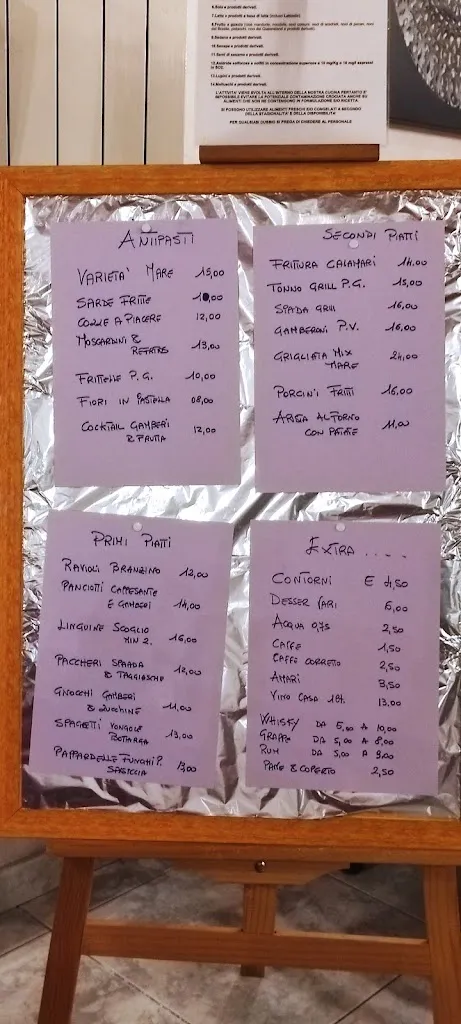 6.Soia e prodotti derivati.
7.Latte e prodotti a base di latte (incluso Lattosio)
9.Sedano e prodotti derivati.
10.Senape e prodotti derivati.
11.Semi di sesamo e prodotti derivati.
12.Anidride solforosa e solfiti in concentrazione superiore a 10 mg/Kg o 10 mg/l espressi
in SO2.
13.Lupini e prodotti derivati.
14.Molluschi e prodotti derivati.
L'ATTIVITA' VIENE SVOLTA ALL'INTERNO DELLA NOSTRA CUCINA PERTANTO E'
IMPOSSIBILE EVITARE LA POTENZIALE CONTAMINAZIONE CROCIATA ANCHE SU
ALIMENTI CHE NON NE CONTENGONO IN FORMULAZIONE E/O RICETTA
SI POSSONO UTILIZZARE ALIMENTI FRESCHI E/O CONGELATI A SECONDO
DELLA STAGIONALITA' E DELLA DISPONIBILITA'
PER QUALUNQUE DUBBIO SI PREGA DI CHIEDERE AL PERSONALE
ANTIPASTI
VARIETA' MARE 15,00
SARDE FRITTE 10,00
COZZE A PIACERE 12,00
MOSCARDINI &
13,00
FRITTELLE P.G. 10,00
FIORI IN PASTELLA 08,00
COCKTAIL GAMBERI
& FRUTTA 12,00
SECONDI PIATTI
FRITTURA CALAMARI 14,00
TONNO GRILL P.G. 15,00
SPADA GRILL 16,00
GAMBERONI P.V. 16,00
GRIGLIATA MIX
MARE 24,00
PORCINI FRITTI 16,00
ARISTA AL FORNO
CON PATATE 11,00
PRIMI PIATTI
RAVIOLI BRANZINO 12,00
PANCIOTTI CAPPESANTE
E GAMBERI 14,00
LINGUINE SCOGLIO
MIN 2. 16,00
PACCHERI SPADA
& TAGGIASCHE 12,00
GNOCCHI GAMBERI
& ZUCCHINE 11,00
SPAGHETTI VONGOLE
BOTTARGA 13,00
PAPPARDELLE FUNGHI P.
SALSICCIA 13,00
EXTRA ....
CONTORNI E 4,50
DESSER VARI 6,00
ACQUA 0,75 2,50
CAFFE 1,50
CAFFE CORRETTO 2,50
AMARI 3,50
VINO CASA 1 Lt. 13,00
WHISKY DA 5,00 A 10,00
GRAPPE DA 5,00 A 8,00
RUM DA 5,00 A 9,00
PANE & COPERTO 2,50